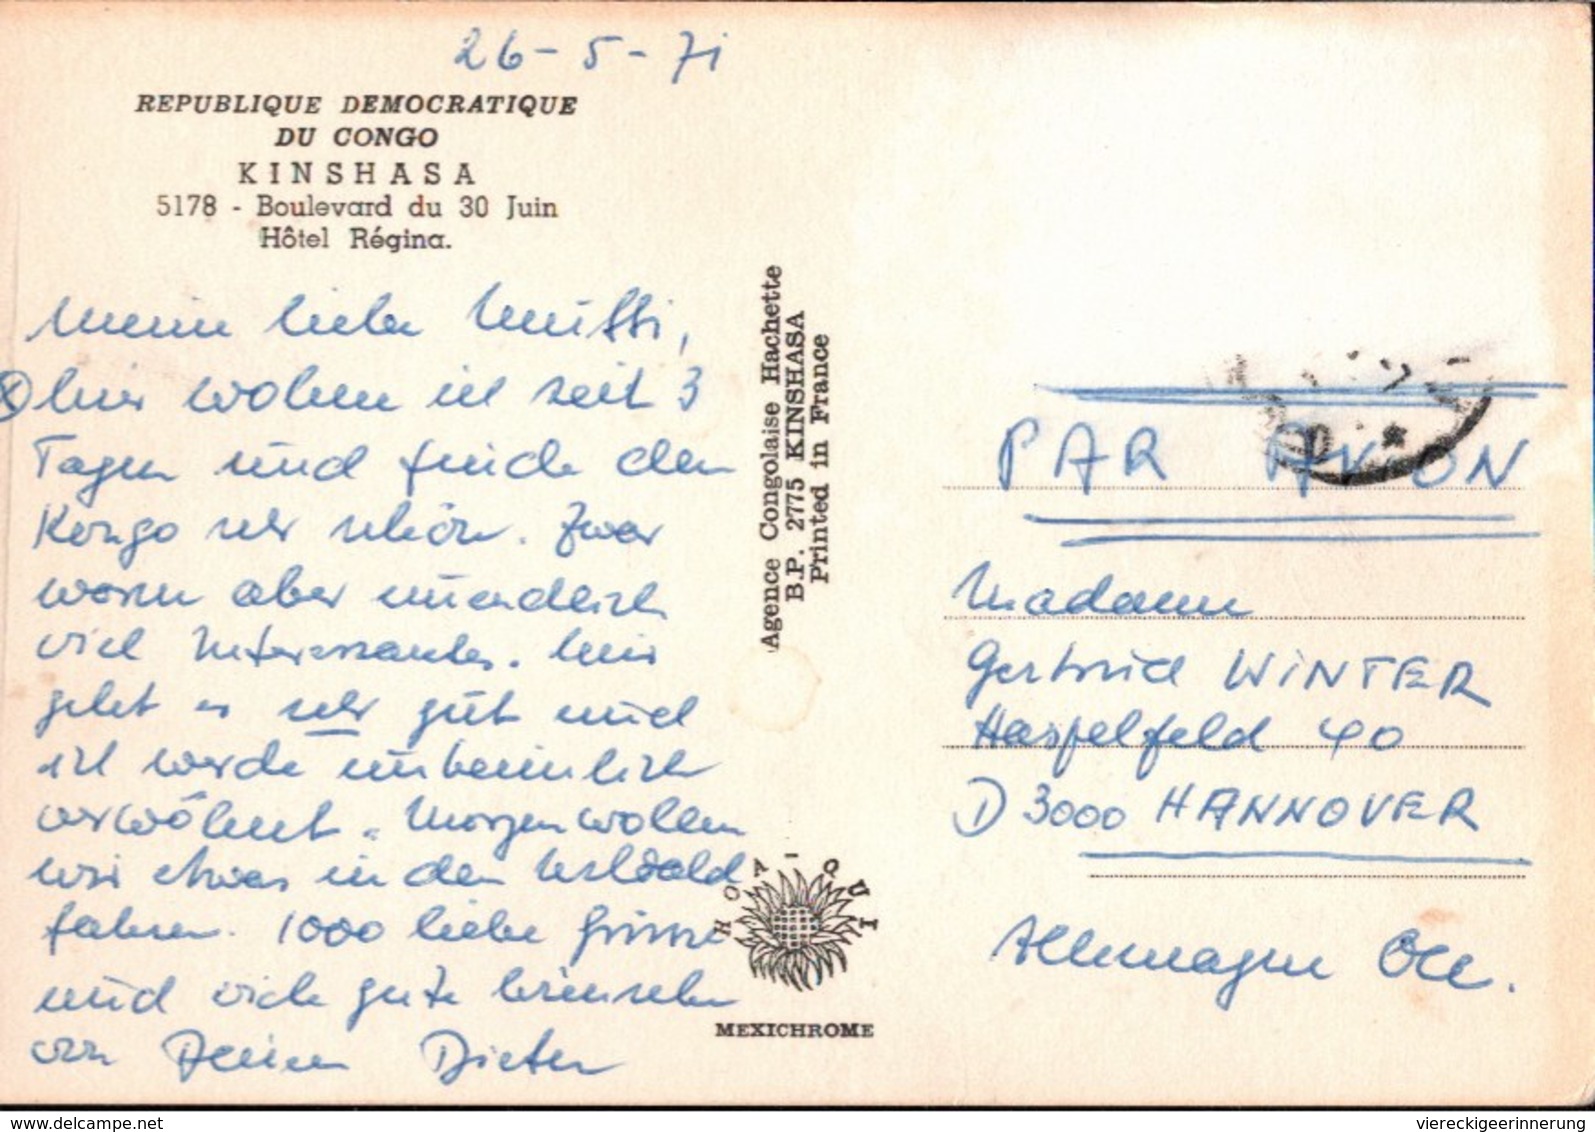 26-5-71
REPUBLIQUE DEMOCRATIQUE
DU CONGO
KINSHASA
5178 - Boulevard du 30 Juin
Hôtel Régina.
Meine liebe Mutti,
hier wohne ich seit 3
Tagen und finde den
Kongo sehr schön. Zwar
warm aber unendlich
viel Interessantes. Mir
geht es sehr gut und
ich werde unheimlich
verwöhnt. Morgen wollen
wir etwas in den Urwald
fahren. 1000 liebe Grüsse
und viele gute Wünsche
von Deinem Dieter
Agence Congolaise Hachette
B.P. 2775 KINSHASA
Printed in France
HOA-QUI
MEXICHROME
PAR AVION
Madame
Gertrud WINTER
Haspelfeld 40
D 3000 HANNOVER
Allemagne Occ.
delcampe.net
viereckigeerinnerung